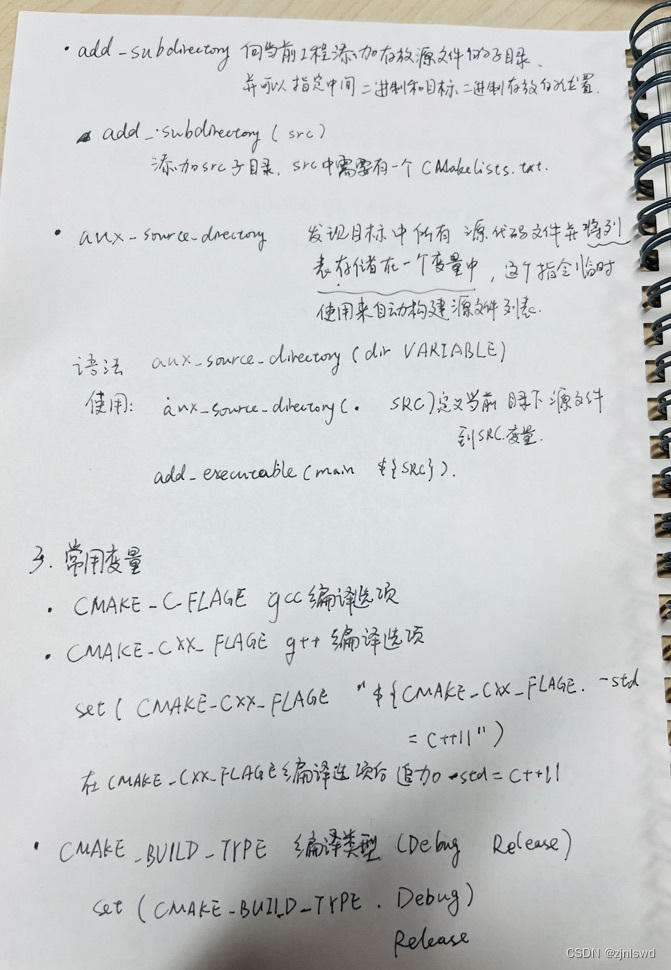 · add_subdirectory 向当前工程添加存放源文件的子目录、
并可以指定中间二进制和目标二进制存放的位置.
add_subdirectory ( src )
添加src子目录, src中需要有一个 CMakelists.txt.
· aux_source_directory 发现目标中所有 源代码文件并将列
表存储在一个变量中, 这个指令临时
使用来自动构建源文件列表.
语法 aux_source_directory (dir VARIABLE)
使用: aux_source_directory ( . SRC ) 定义当前目录下源文件
到SRC变量.
add_executable (main ${SRC}).
3. 常用变量
· CMAKE_C_FLAGE gcc编译选项
· CMAKE_CXX_FLAGE g++ 编译选项
set ( CMAKE_CXX_FLAGE "${CMAKE_CXX_FLAGE. -std
= C++11")
在CMAKE_CXX_FLAGE编译选项后 追加 -std = C++11
· CMAKE_BUILD_TYPE 编译类型 (Debug Release)
set ( CMAKE_BUILD_TYPE . Debug)
Release
CSDN @zjnlswd